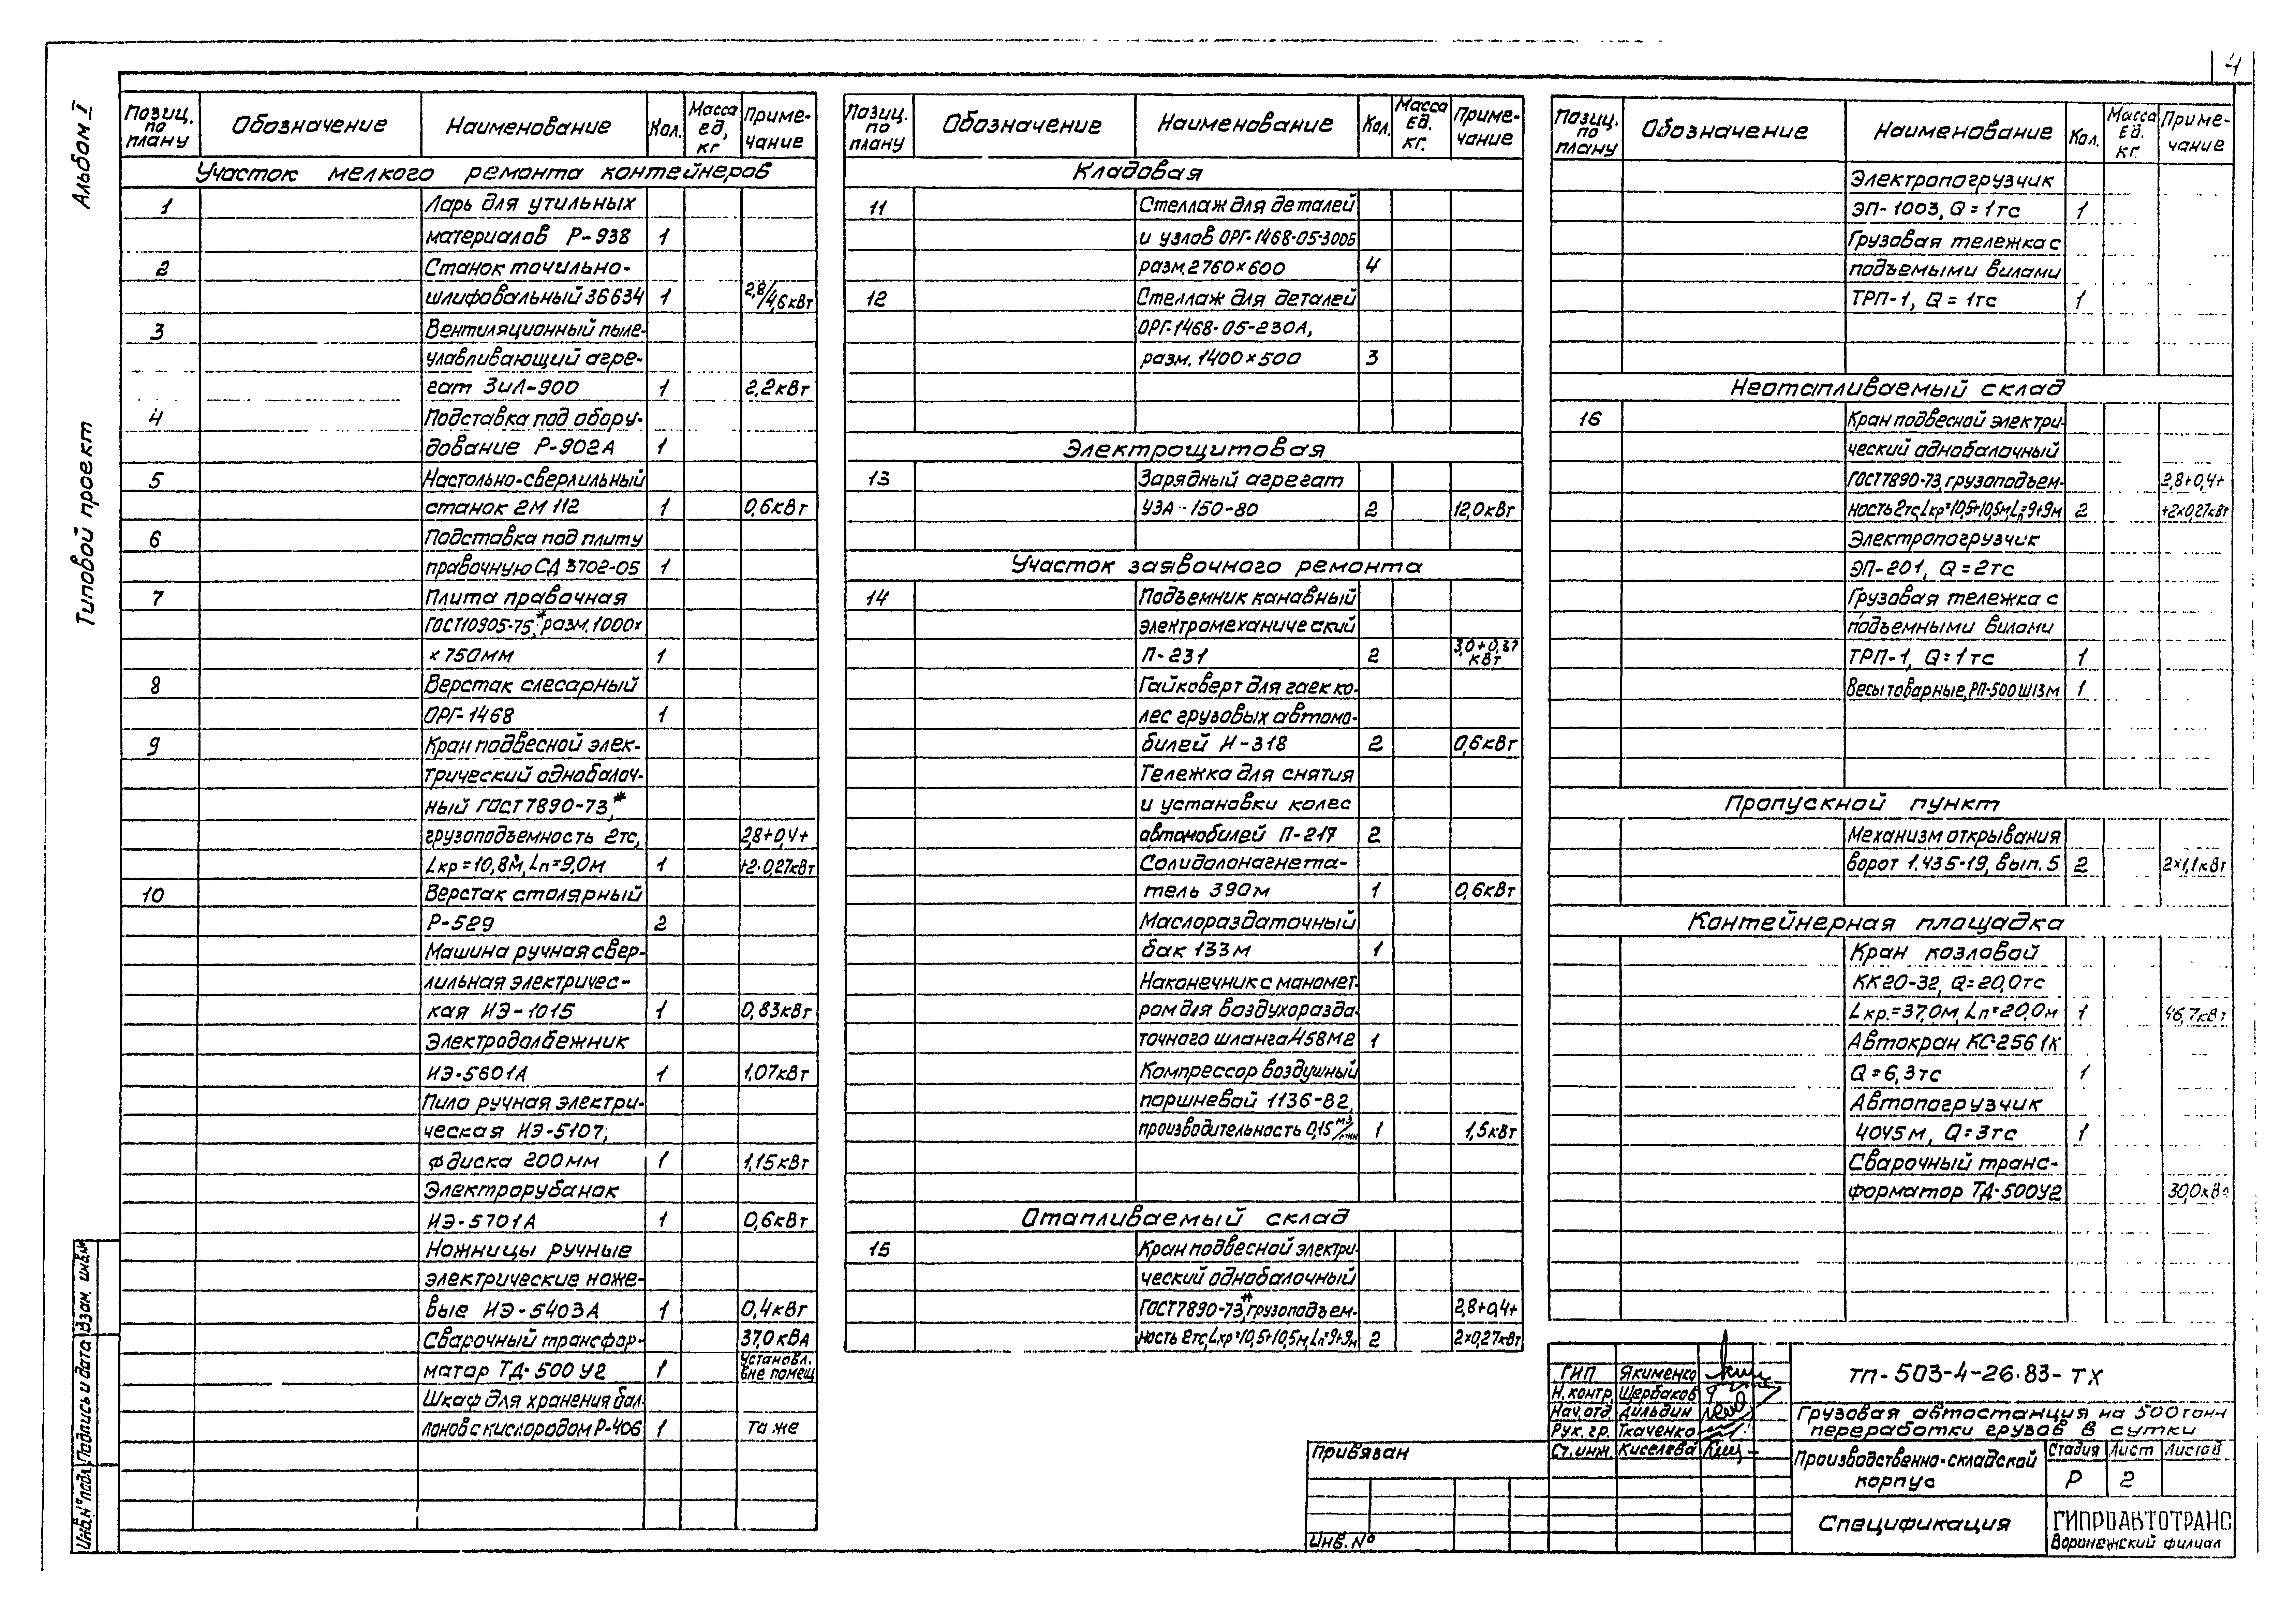 4
Альбом I
Типовой проект
Позиц. по плану Обозначение Наименование Кол. Масса ед, кг Примечание
Участок мелкого ремонта контейнеров
1 Ларь для утильных
материалов Р-938 1
2 Станок точильно-
шлифовальный 3Б634 1 2,8/4,6кВт
3 Вентиляционный пыле-
улавливающий агре-
гат ЗиЛ-900 1 2,2кВт
4 Подставка под обору-
дование Р-902А 1
5 Настольно-сверлильный
станок 2М112 1 0,6кВт
6 Подставка под плиту
правочную СД 3702-05 1
7 Плита правочная
ГОСТ10905-75,* разм. 1000×
×750мм 1
8 Верстак слесарный
ОРГ-1468 1
9 Кран подвесной элек-
трический однобалоч-
ный ГОСТ7890-73,*
грузоподъемность 2тс, 2,8+0,4+
Lкр=10,8м, Lп=9,0м 1 +2·0,27кВт
10 Верстак столярный
Р-529 2
Машина ручная свер-
лильная электричес-
кая ИЭ-1015 1 0,83кВт
Электродолбежник
ИЭ-5601А 1 1,07кВт
Пила ручная электри-
ческая ИЭ-5107,
ф диска 200мм 1 1,15кВт
Электрорубанок
ИЭ-5701А 1 0,6кВт
Ножницы ручные
электрические ноже-
вые ИЭ-5403А 1 0,4кВт
Сварочный трансфор- 37,0 кВА
матор ТД-500 У2 1 Установл. вне помещ
Шкаф для хранения бал-
лонов с кислородом Р-406 1 то же
Позиц. по плану Обозначение Наименование Кол. Масса Ед. кг. Примечание
Кладовая
11 Стеллаж для деталей
и узлов ОРГ-1468-05-300Б
разм. 2760×600 4
12 Стеллаж для деталей
ОРГ-1468-05-230А,
разм. 1400×500 3
Электрощитовая
13 Зарядный агрегат
УЗА-150-80 2 12,0кВт
Участок заявочного ремонта
14 Подъемник канавный
электромеханический
П-231 2 3,0+0,37 кВт
Гайковерт для гаек ко-
лес грузовых автомо-
билей И-318 2 0,6кВт
Тележка для снятия
и установки колес
автомобилей П-217 2
Солидолонагнета-
тель 390м 1 0,6кВт
Маслораздаточный
бак 133м 1
Наконечник с маномет-
ром для воздухоразда-
точного шланга 458М2 1
Компрессор воздушный
поршневой 1136-В2,
производительность 0,15 м3/мин 1 1,5кВт
Отапливаемый склад
15 Кран подвесной электри-
ческий однобалочный
ГОСТ7890-73,* грузоподъем- 2,8+0,4+
ность 2тс, Lкр=10,5+10,5м, Lп=9+9м 2 2×0,27кВт
Позиц. по плану Обозначение Наименование Кол. Масса Ед. кг. Примечание
Электропогрузчик
ЭП-1003, Q=1тс 1
Грузовая тележка с
подъемыми вилами
ТРП-1, Q=1тс 1
Неотапливаемый склад
16 Кран подвесной электри-
ческий однобалочный
ГОСТ7890-73, грузоподъем- 2,8+0,4+
ность 2тс, Lкр=10,5+10,5м, Lп=9+9м 2 +2×0,27кВт
Электропогрузчик
ЭП-201, Q=2тс
Грузовая тележка с
подъемными вилами
ТРП-1, Q=1тс 1
Весы товарные, РП-500Ш13м 1
Пропускной пункт
Механизм открывания
ворот 1.435-19, вып. 5 2 2×1,1кВт
Контейнерная площадка
Кран козловой
КК20-32, Q=20,0тс
Lкр.=37,0м, Lп=20,0м 1 46,7кВт
Автокран КС-2561К
Q=6,3тс 1
Автопогрузчик
4045м, Q=3тс 1
Сварочный транс-
форматор ТД-500У2 30,0кВА
Взам. инв.№
Подпись и дата
Инв.№ подл.
Привязан
Инв. №
ГИП Якименко
Н.контр. Щербаков
Нач.отд.
Рук. гр. Ткаченко
Ст.инж. Киселева
ТП-503-4-26.83-ТХ
Грузовая автостанция на 500тонн
переработки грузов в сутки
Производственно-складской корпус
Стадия Лист Листов
Р 2
Спецификация
ГИПРОАВТОТРАНС
Воронежский филиал